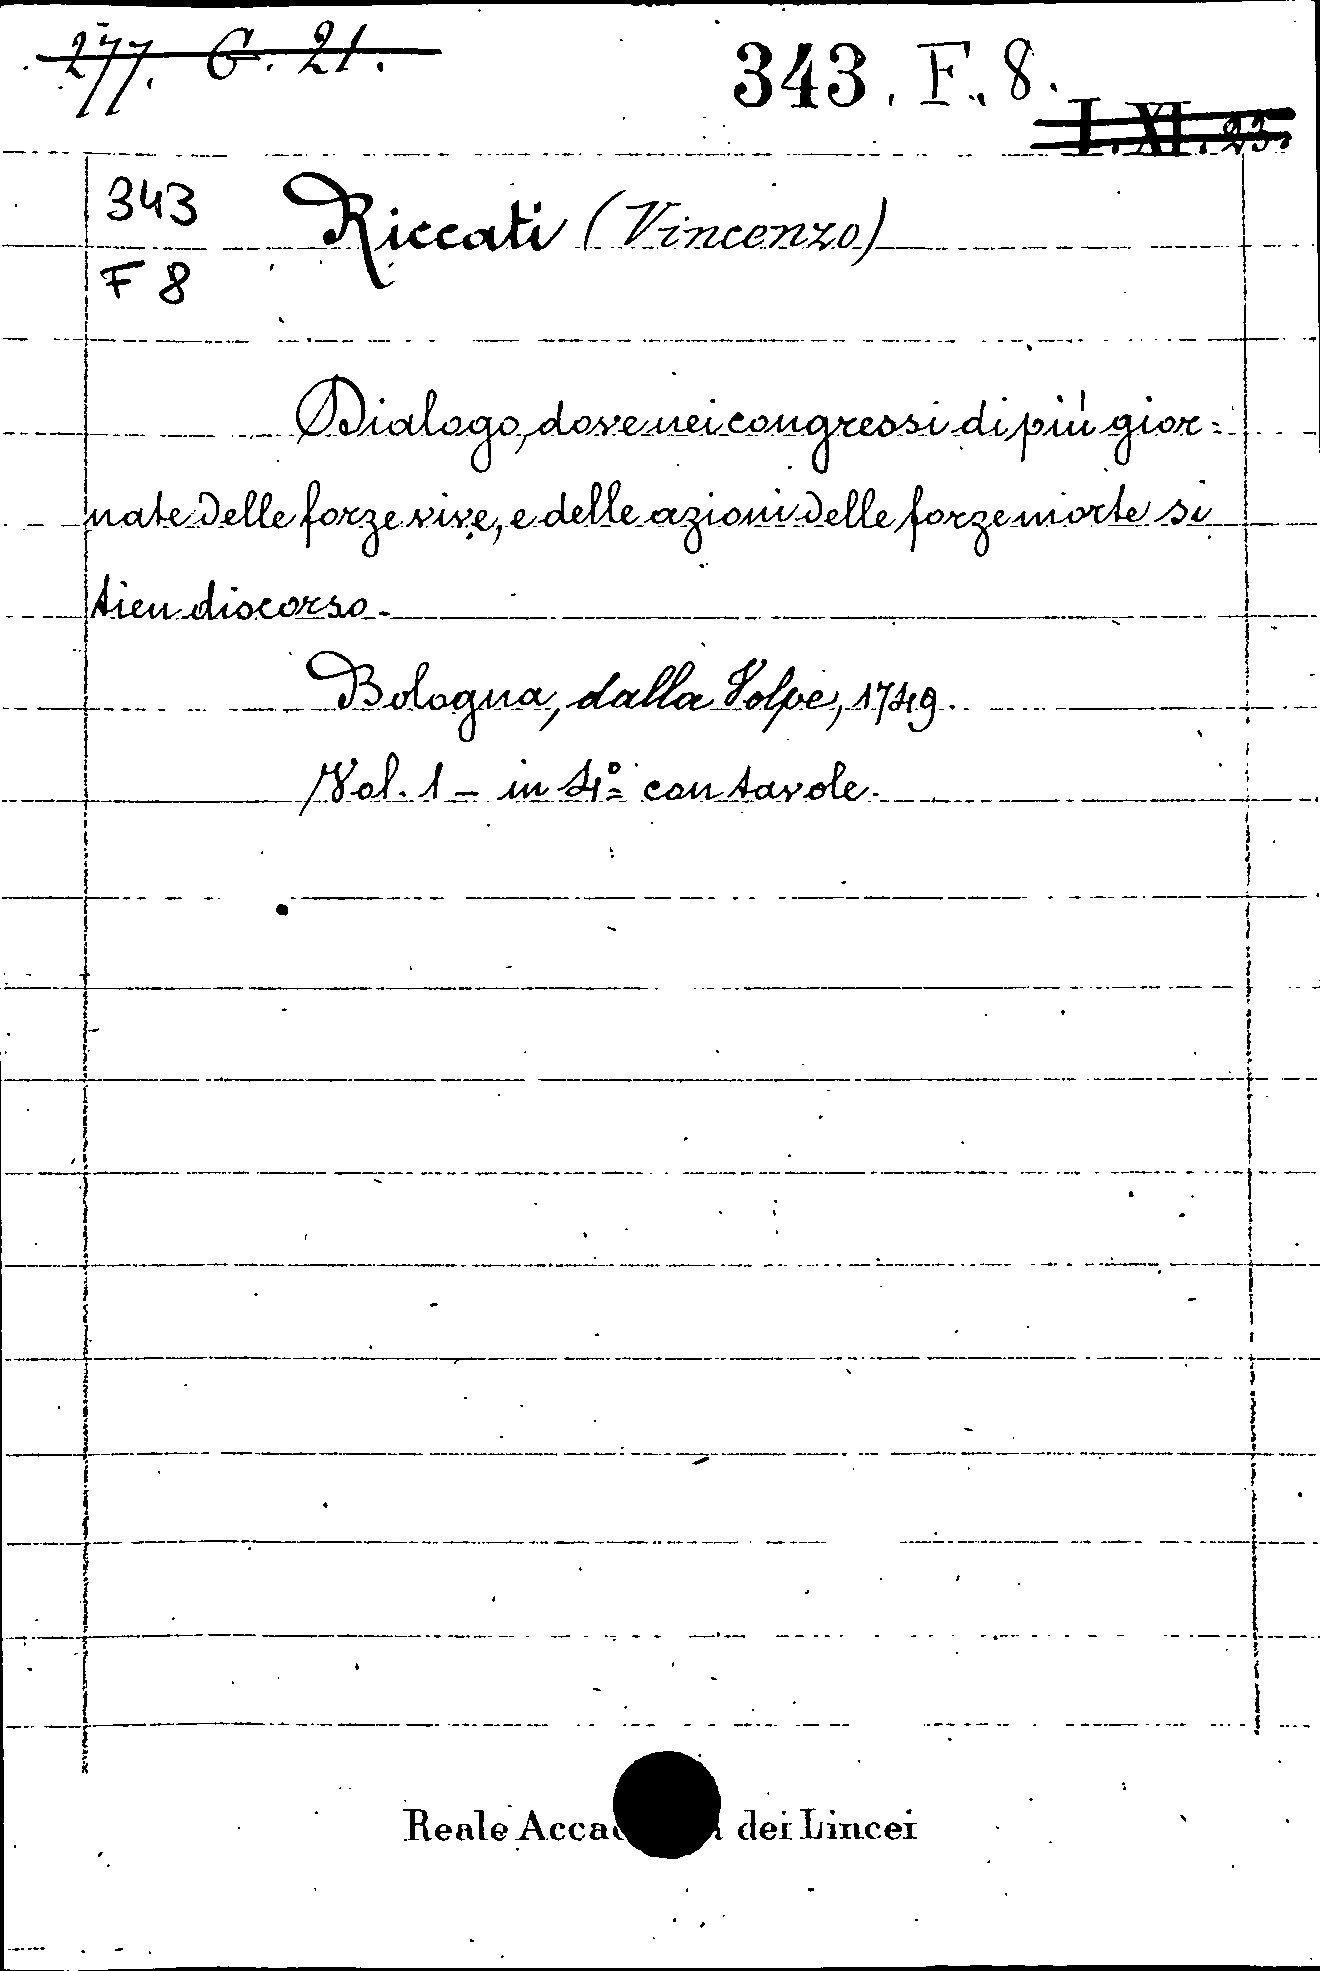 277. G. 21.
343. F. 8.
I. XI. 23.
343
F 8
Riccati (Vincenzo)
Dialogo, dove nei congressi di più gior=
nate delle forze vive, e delle azioni delle forze morte si
tien discorso.
Bologna, dalla Volpe, 1749.
Vol. 1 - in 4º con tavole.
Reale Acca dei Lincei